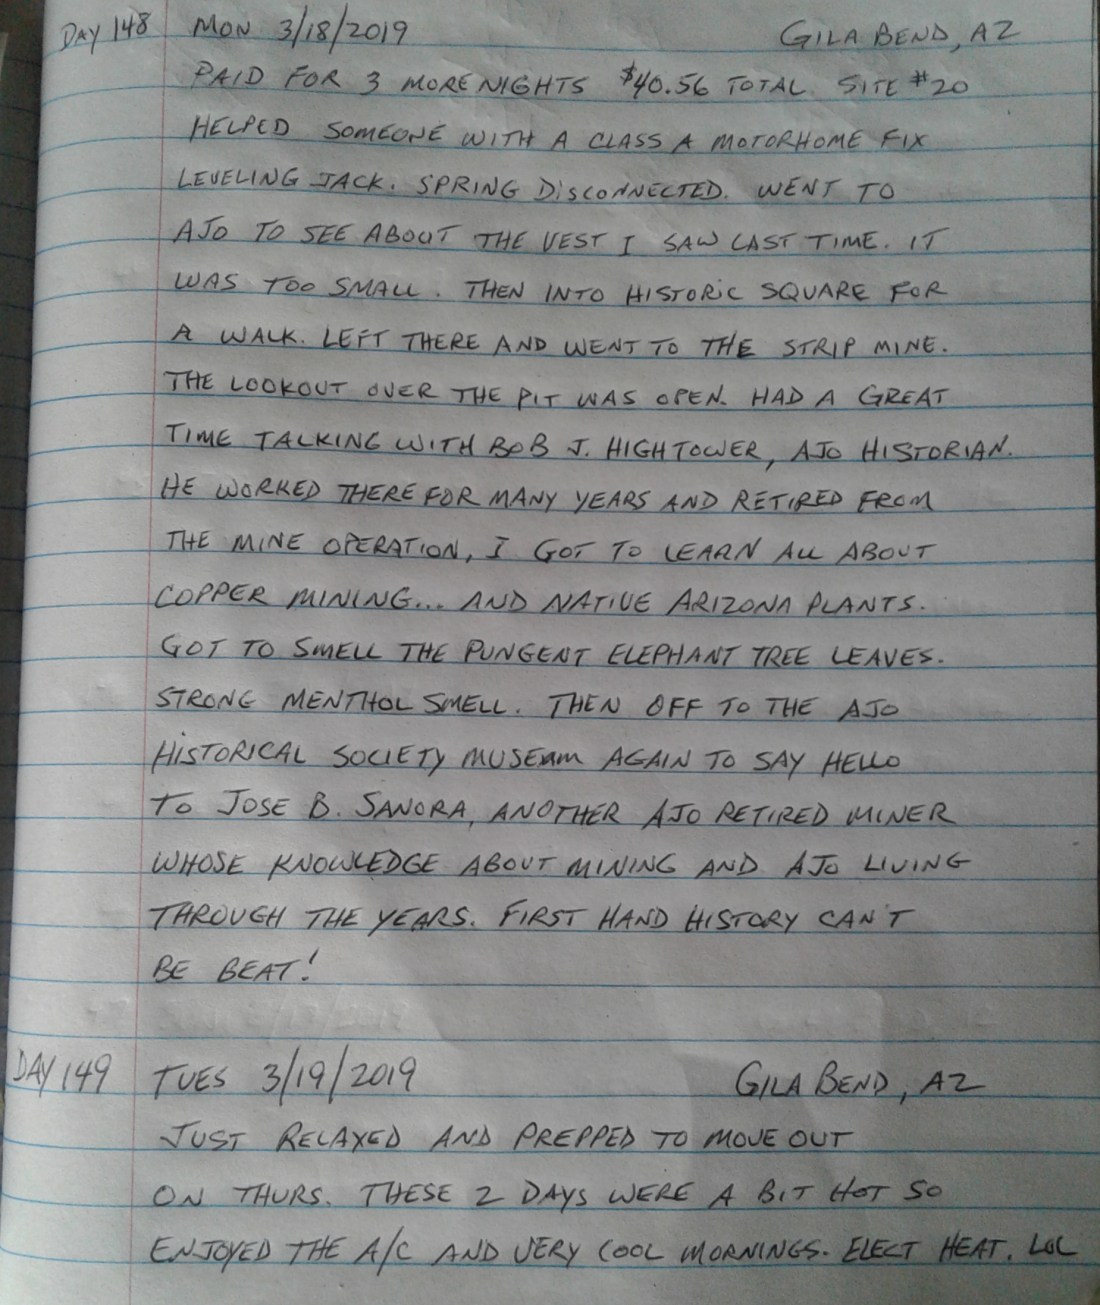 DAY 148 MON 3/18/2019 GILA BEND, AZ
PAID FOR 3 MORE NIGHTS $40.56 TOTAL. SITE #20
HELPED SOMEONE WITH A CLASS A MOTORHOME FIX
LEVELING JACK. SPRING DISCONNECTED. WENT TO
AJO TO SEE ABOUT THE VEST I SAW LAST TIME. IT
WAS TOO SMALL. THEN INTO HISTORIC SQUARE FOR
A WALK. LEFT THERE AND WENT TO THE STRIP MINE.
THE LOOKOUT OVER THE PIT WAS OPEN. HAD A GREAT
TIME TALKING WITH BOB J. HIGHTOWER, AJO HISTORIAN.
HE WORKED THERE FOR MANY YEARS AND RETIRED FROM
THE MINE OPERATION, I GOT TO LEARN ALL ABOUT
COPPER MINING... AND NATIVE ARIZONA PLANTS.
GOT TO SMELL THE PUNGENT ELEPHANT TREE LEAVES.
STRONG MENTHOL SMELL. THEN OFF TO THE AJO
HISTORICAL SOCIETY MUSEUM AGAIN TO SAY HELLO
TO JOSE B. SANORA, ANOTHER AJO RETIRED MINER
WHOSE KNOWLEDGE ABOUT MINING AND AJO LIVING
THROUGH THE YEARS. FIRST HAND HISTORY CAN'T
BE BEAT!
DAY 149 TUES 3/19/2019 GILA BEND, AZ
JUST RELAXED AND PREPPED TO MOVE OUT
ON THURS. THESE 2 DAYS WERE A BIT HOT SO
ENJOYED THE A/C AND VERY COOL MORNINGS. ELECT HEAT. LOL